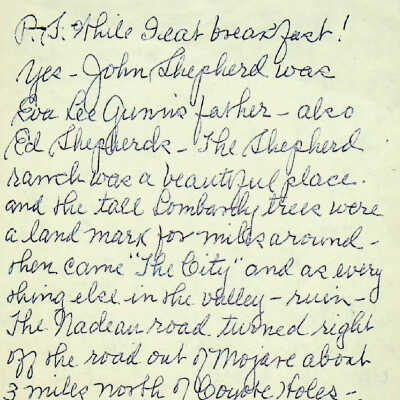 P.S. While I eat breakfast!
Yes - John Shepherd was
Eva Lee Gunn's father - also
Ed Shepherds - The Shepherd
ranch was a beautiful place.
and the tall Lombardy trees were
a land mark for miles around -
then came "The City" and as every
thing else in the valley - ruin -
The Nadeau road turned right
off the road out of Mojave about
3 miles north of Coyote Holes -